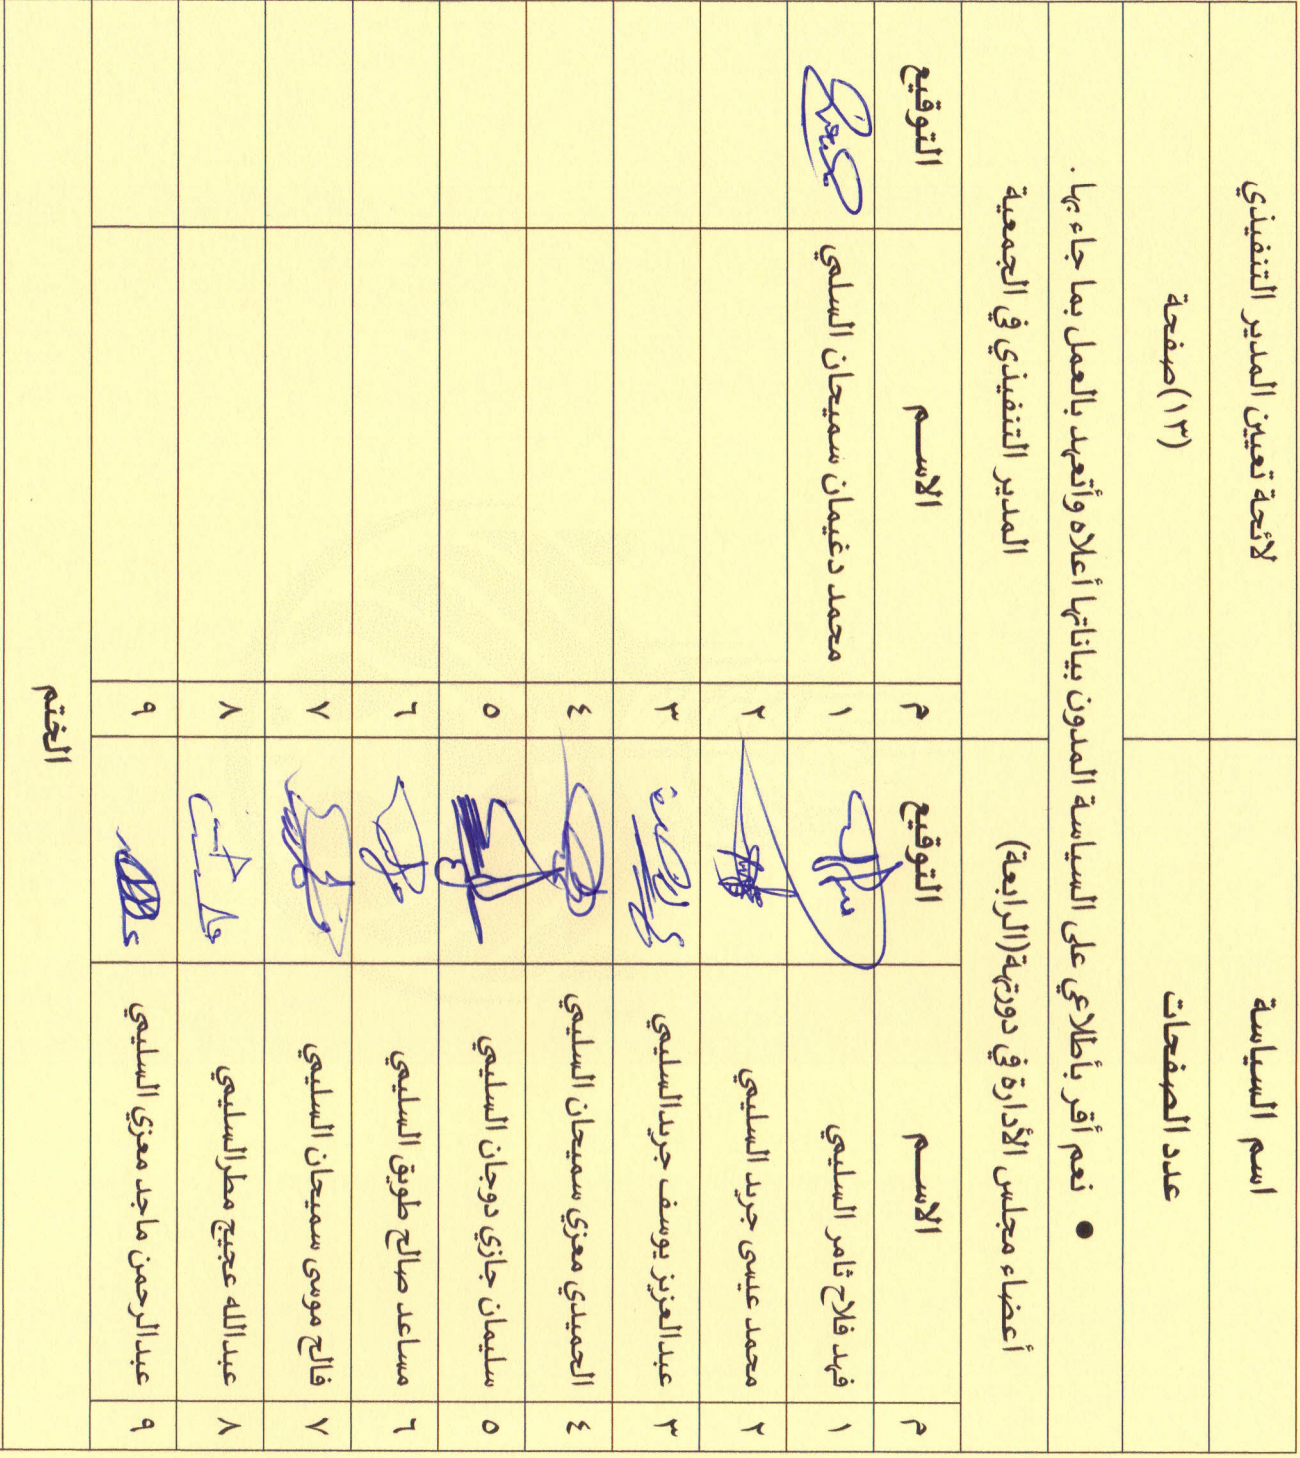 اسم السياسة لائحة تعيين المدير التنفيذي
عدد الصفحات (١٣) صفحة
● نعم أقر بأطلاعي على السياسة المدون بياناتها أعلاه وأتعهد بالعمل بما جاء بها .
أعضاء مجلس الأدارة في دورتهة (الرابعة) المدير التنفيذي في الجمعية
م الاســم التوقيع م الاســم التوقيع
١ فهد فلاح ثامر السليمي ١ محمد دغيمان سميحان السلمي
٢ محمد عيسى جريد السليمي ٢
٣ عبدالعزيز يوسف جريد السليمي ٣
٤ الحميدي معزي سميحان السليمي ٤
٥ سليمان جازي دوجان السليمي ٥
٦ مساعد صالح طويق السليمي ٦
٧ فالح موسى سميحان السليمي ٧
٨ عبدالله عجيج مطر السليمي ٨
٩ عبدالرحمن ماجد معزي السليمي ٩
الختم